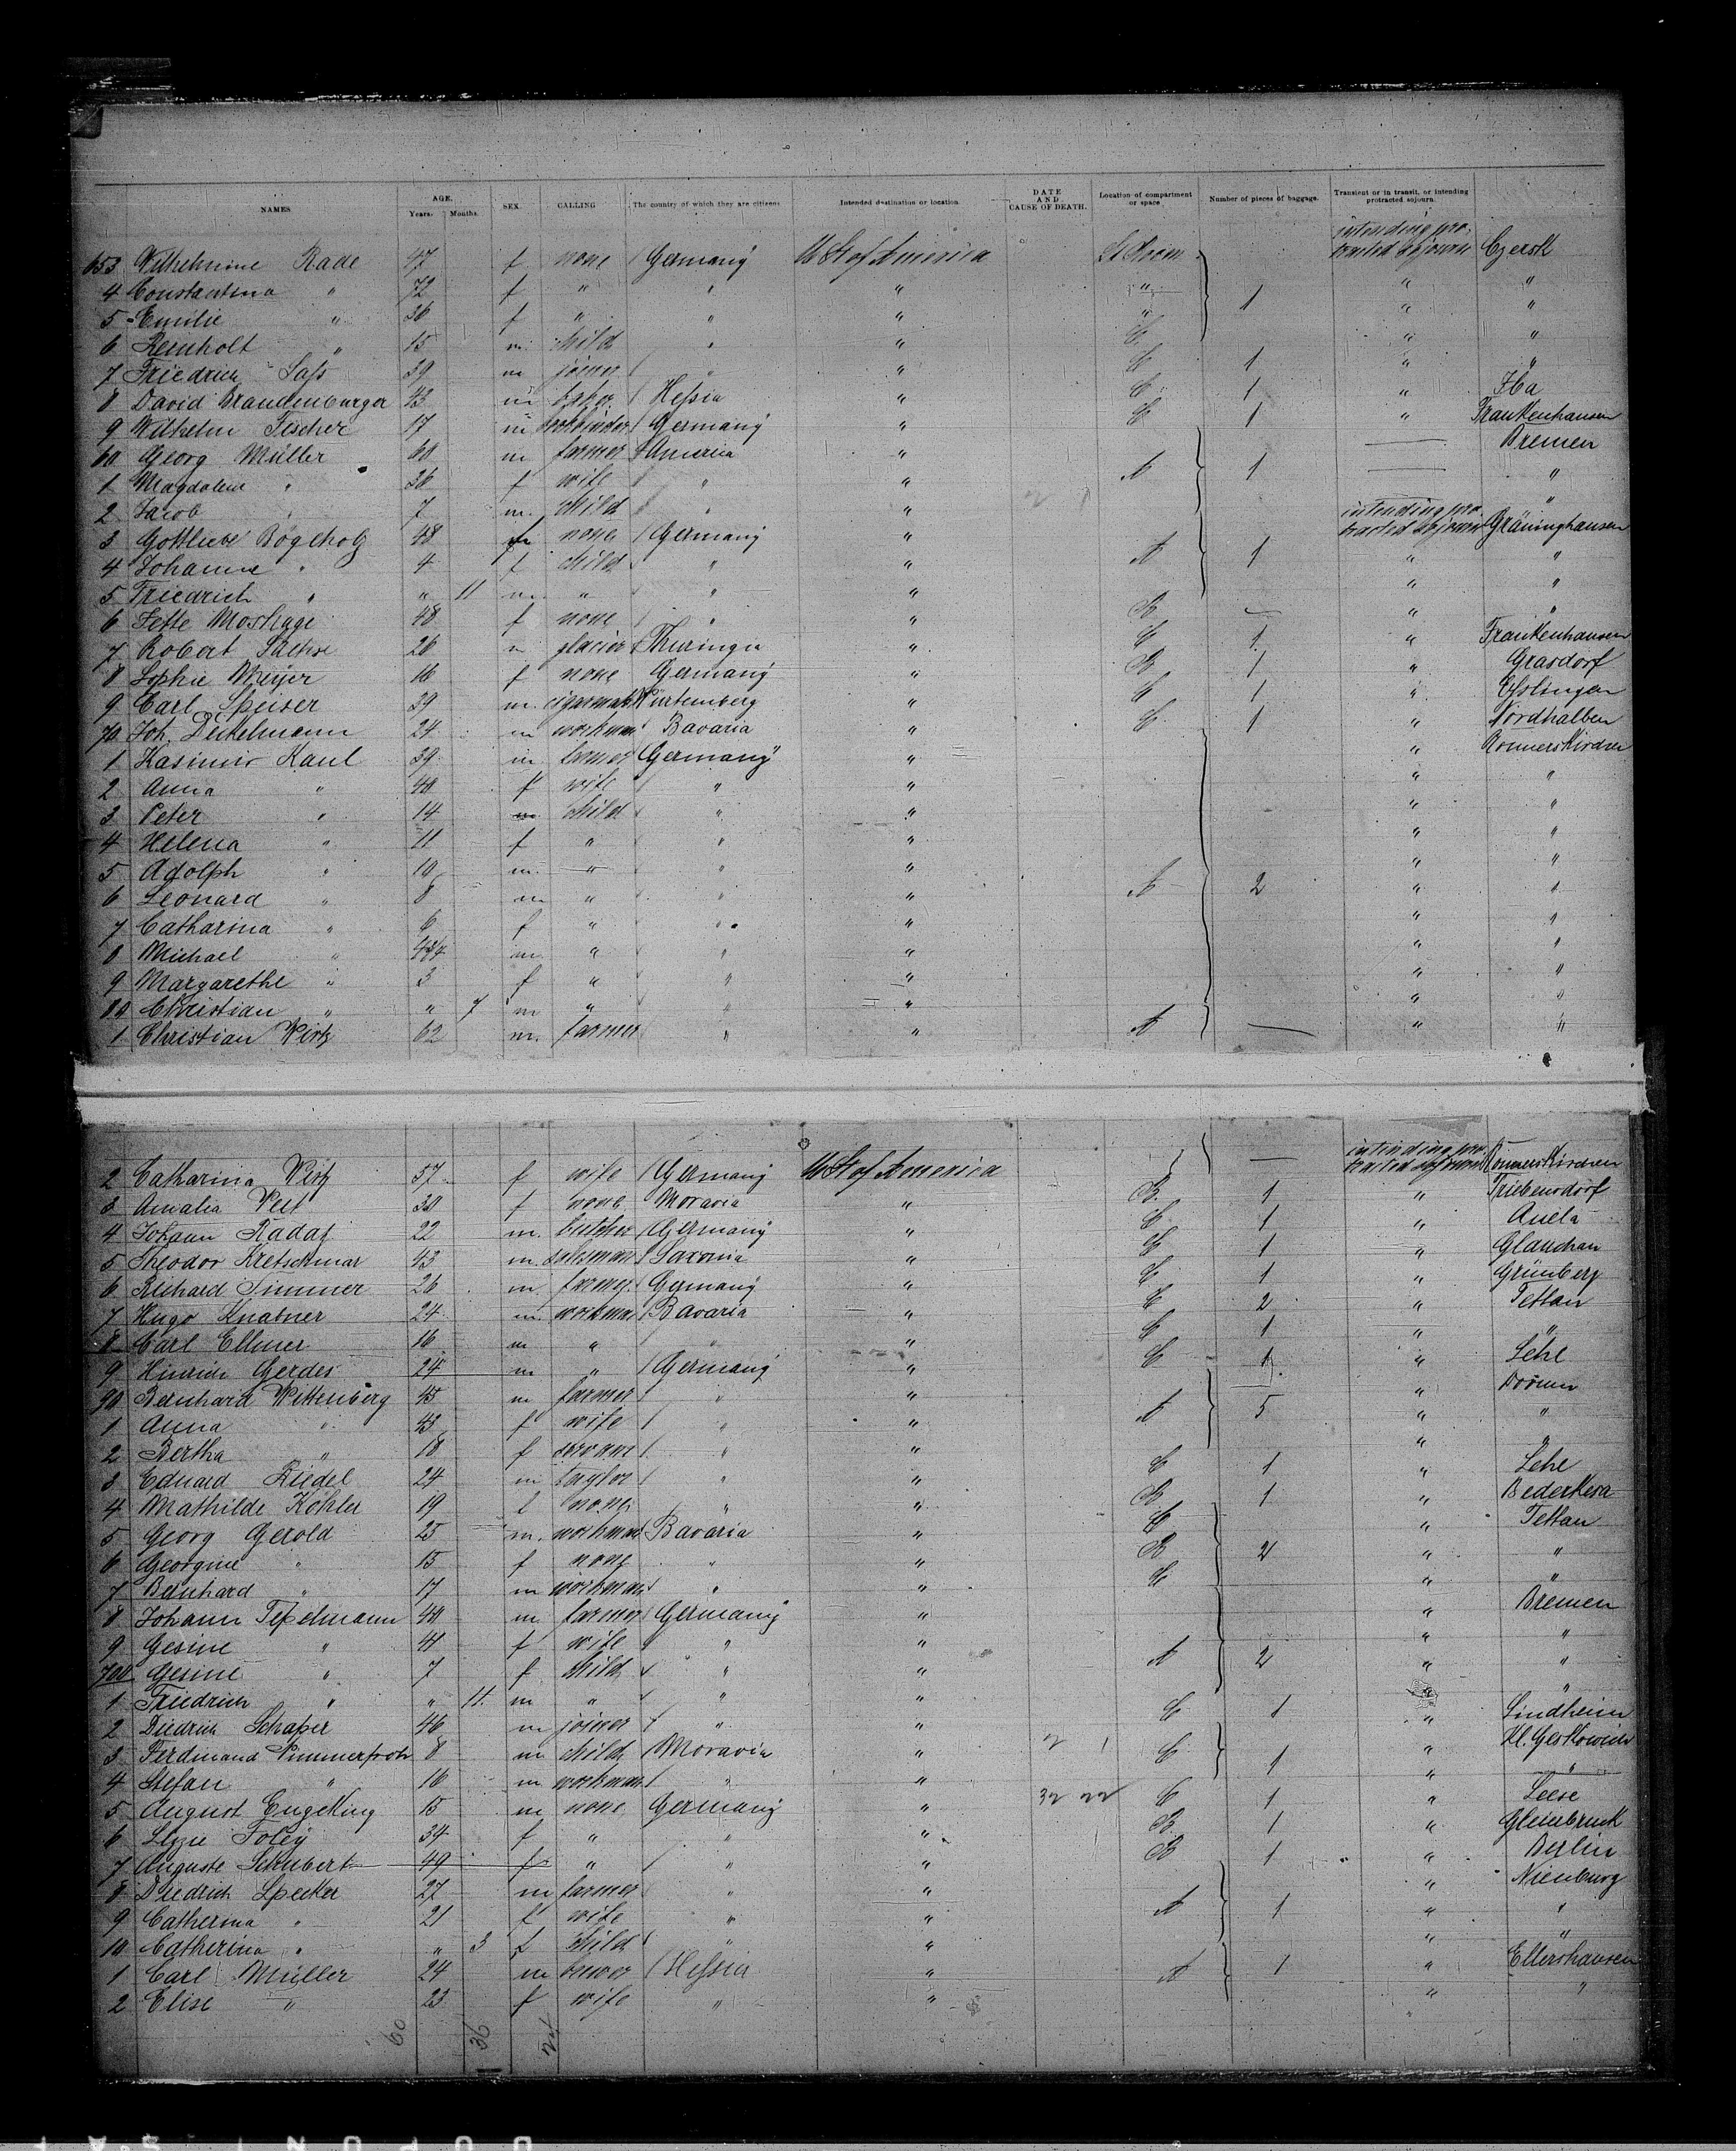 NAMES AGE. Years. Months. SEX. CALLING The country of which they are citizens Intended destination or location. DATE AND CAUSE OF DEATH. Location of compartment or space Number of pieces of baggage. Transient or in transit, or intending protracted sojourn.
653 Wilhelmine Rade 47 f none Germany U St of America intending protracted sojourn Czersk
4 Constantina " 72 f " " " " " "
5 Emilie " 36 f " " " " 1 " "
6 Reinholt " 15 m child " " C " "
7 Friedrich Sass 39 m joiner " " C 1 " "
8 David Brandenburger 43 m Hessia " C 1 " Iba
9 Wilhelm Fischer 17 m Germany " C 1 " Frankenhausen
60 Georg Müller 60 m farmer America " Bremen
1 Magdalene " 36 f wife " " A 1 "
2 Jacob " 7 m child " " "
3 Gottliebe Bögeholz 48 f none Germany " intending protracted sojourn Gräninghausen
4 Johanne " 4 f child " " A 1 " "
5 Friedrich " " 11 m " " " " "
6 Jette Moshage 48 f none " " B — " "
7 Robert Sachse 26 m glacier Thuringia " C 1 " Frankenhausen
8 Sophie Meyer 16 f none Germany " B 1 " Grasdorf
9 Carl Speiser 39 m cigarmak Würtemberg " C 1 " Esslingen
70 Joh. Dickelmann 24 m workman Bavaria " C 1 " Nordhalben
1 Kasimir Kaul 39 m farmer Germany " " Rommerskirchen
2 Anna " 40 f wife " " " "
3 Peter " 14 m child " " " "
4 Helena " 11 f " " " " "
5 Adolph " 10 m " " " " "
6 Leonard " 8 m " " " A 2 " "
7 Catharina " 6 f " " " " "
8 Michael " 4 m " " " " "
9 Margarethe " 3 f " " " " "
80 Christian " " 7 m " " " " "
1 Christian Wirtz 62 m farmer " " A — " "
2 Catharina Wirtz 57 f wife Germany U St of America — intending protracted sojourn Rommerskirchen
3 Amalia Veit 30 f none Moravia " B 1 " Triebendorf
4 Johann Radaj 22 m butcher Germany " C 1 "
5 Theodor Kretschmar 43 m salesman Saxonia " C 1 " Glauchau
6 Richard Simmer 26 m farmer Germany " C 1 " Grünberg
7 Hugo Knabner 24 m workman Bavaria " C 2 " Tettau
8 Carl Ellmer 16 m " " " C 1 " "
9 Hinrich Gerdes 24 m " Germany " C 1 " Lehe
90 Bernhard Wittenberg 45 m farmer " " "
1 Anna " 43 f wife " " A 5 " "
2 Bertha " 18 f servant " " " "
3 Eduard Riedel 24 m taylor " " C 1 " Lehe
4 Mathilde Köhler 19 f none " " B 1 " Bederkesa
5 Georg Gerold 25 m workman Bavaria " C " Tettau
6 Georgine " 15 f none " " B 2 " "
7 Bernhard " 17 m workman " " C " "
8 Johann Tepelmann 40 m farmer Germany " " Bremen
9 Gesine " 41 f wife " " " "
700 Gesine " 7 f child " " A 2 " "
1 Friedrich " " 11 m " " " " "
2 Diedrich Schaper 46 m joiner " " C 1 " Lindheim
3 Ferdinand 8 m child Moravia " C 1 "
4 Stefan " 16 m workman " " " "
5 August Engelking 15 m none Germany " C 1 " Leese
6 Lizzie Foley 34 f " " " B 1 "
7 Auguste Schubert 49 f " " " B 1 " Berlin
8 Diedrich Specker 27 m farmer " " " Nienburg
9 Catherina " 21 f wife " " A 1 " "
10 Catherina " " 3 f child " " " "
1 Carl Müller 24 m Hessia " A 1 " Ellershausen
2 Elise " 23 f wife " " " "
60 36 24